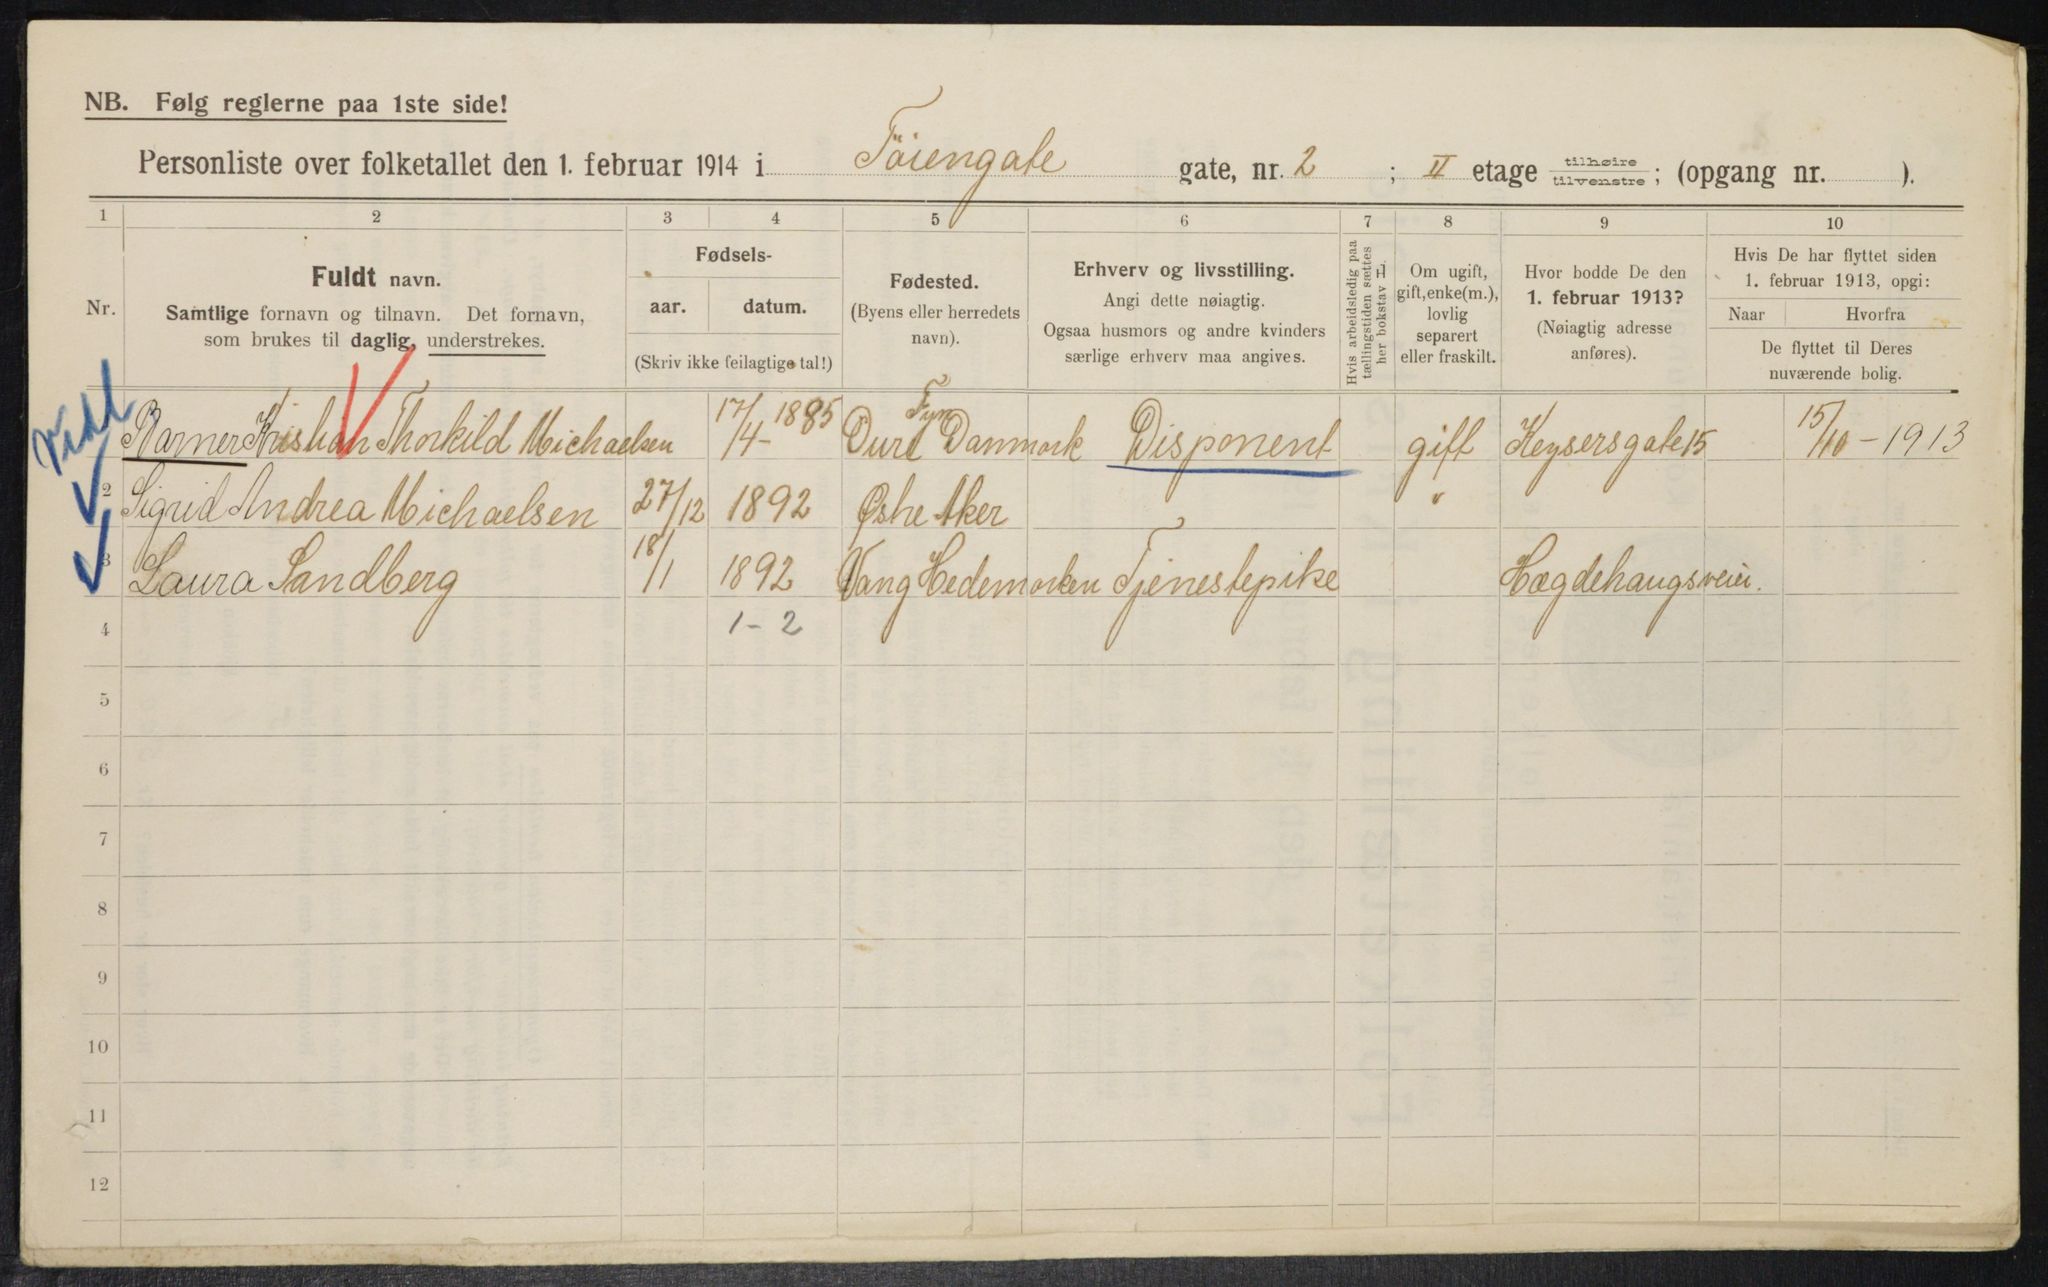 NB. Følg reglerne paa 1ste side!
Personliste over folketallet den 1. februar 1914 i Töiengate gate, nr. 2 ; II etage tilhøire/tilvenstre; (opgang nr. ).
1 2 3 4 5 6 7 8 9 10
Nr.
Fuldt navn.
Samtlige fornavn og tilnavn. Det fornavn,
som brukes til daglig, understrekes.
Fødsels-
aar. datum.
(Skriv ikke feilagtige tal!)
Fødested.
(Byens eller herredets
navn).
Erhverv og livsstilling.
Angi dette nøiagtig.
Ogsaa husmors og andre kvinders
særlige erhverv maa angives.
Hvis arbeidsledig paa
tællingstiden sættes
her bokstav L.
Om ugift,
gift, enke(m.),
lovlig
separert
eller fraskilt.
Hvor bodde De den
1. februar 1913?
(Nøiagtig adresse
anføres).
Hvis De har flyttet siden
1. februar 1913, opgi:
Naar Hvorfra
De flyttet til Deres
nuværende bolig.
Barner Kristian Thorkild Michaelsen 17/4- 1885 Fyn Danmark Disponent gift Keysersgate 15 15/10 - 1913
2 Sigrid Andrea Michaelsen 27/12 1892 Østre Aker "
3 Laura Sandberg 18/1 1892 Vang Hedemarken Tjenestepike Hægdehaugsveien.
4 1-2
5
6
7
8
9
10
11
12